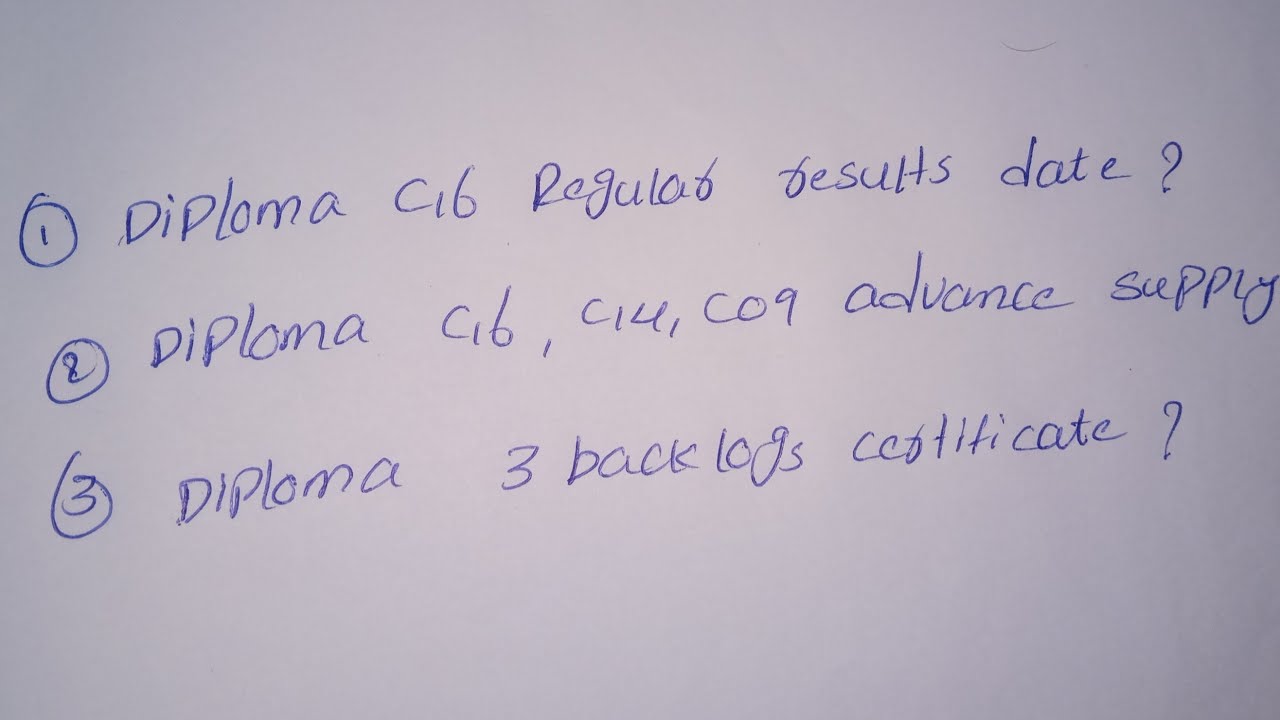 ① Diploma C16 Regular results date?
② Diploma C16, C14, C09 advance supply
③ Diploma 3 backlogs certificate?